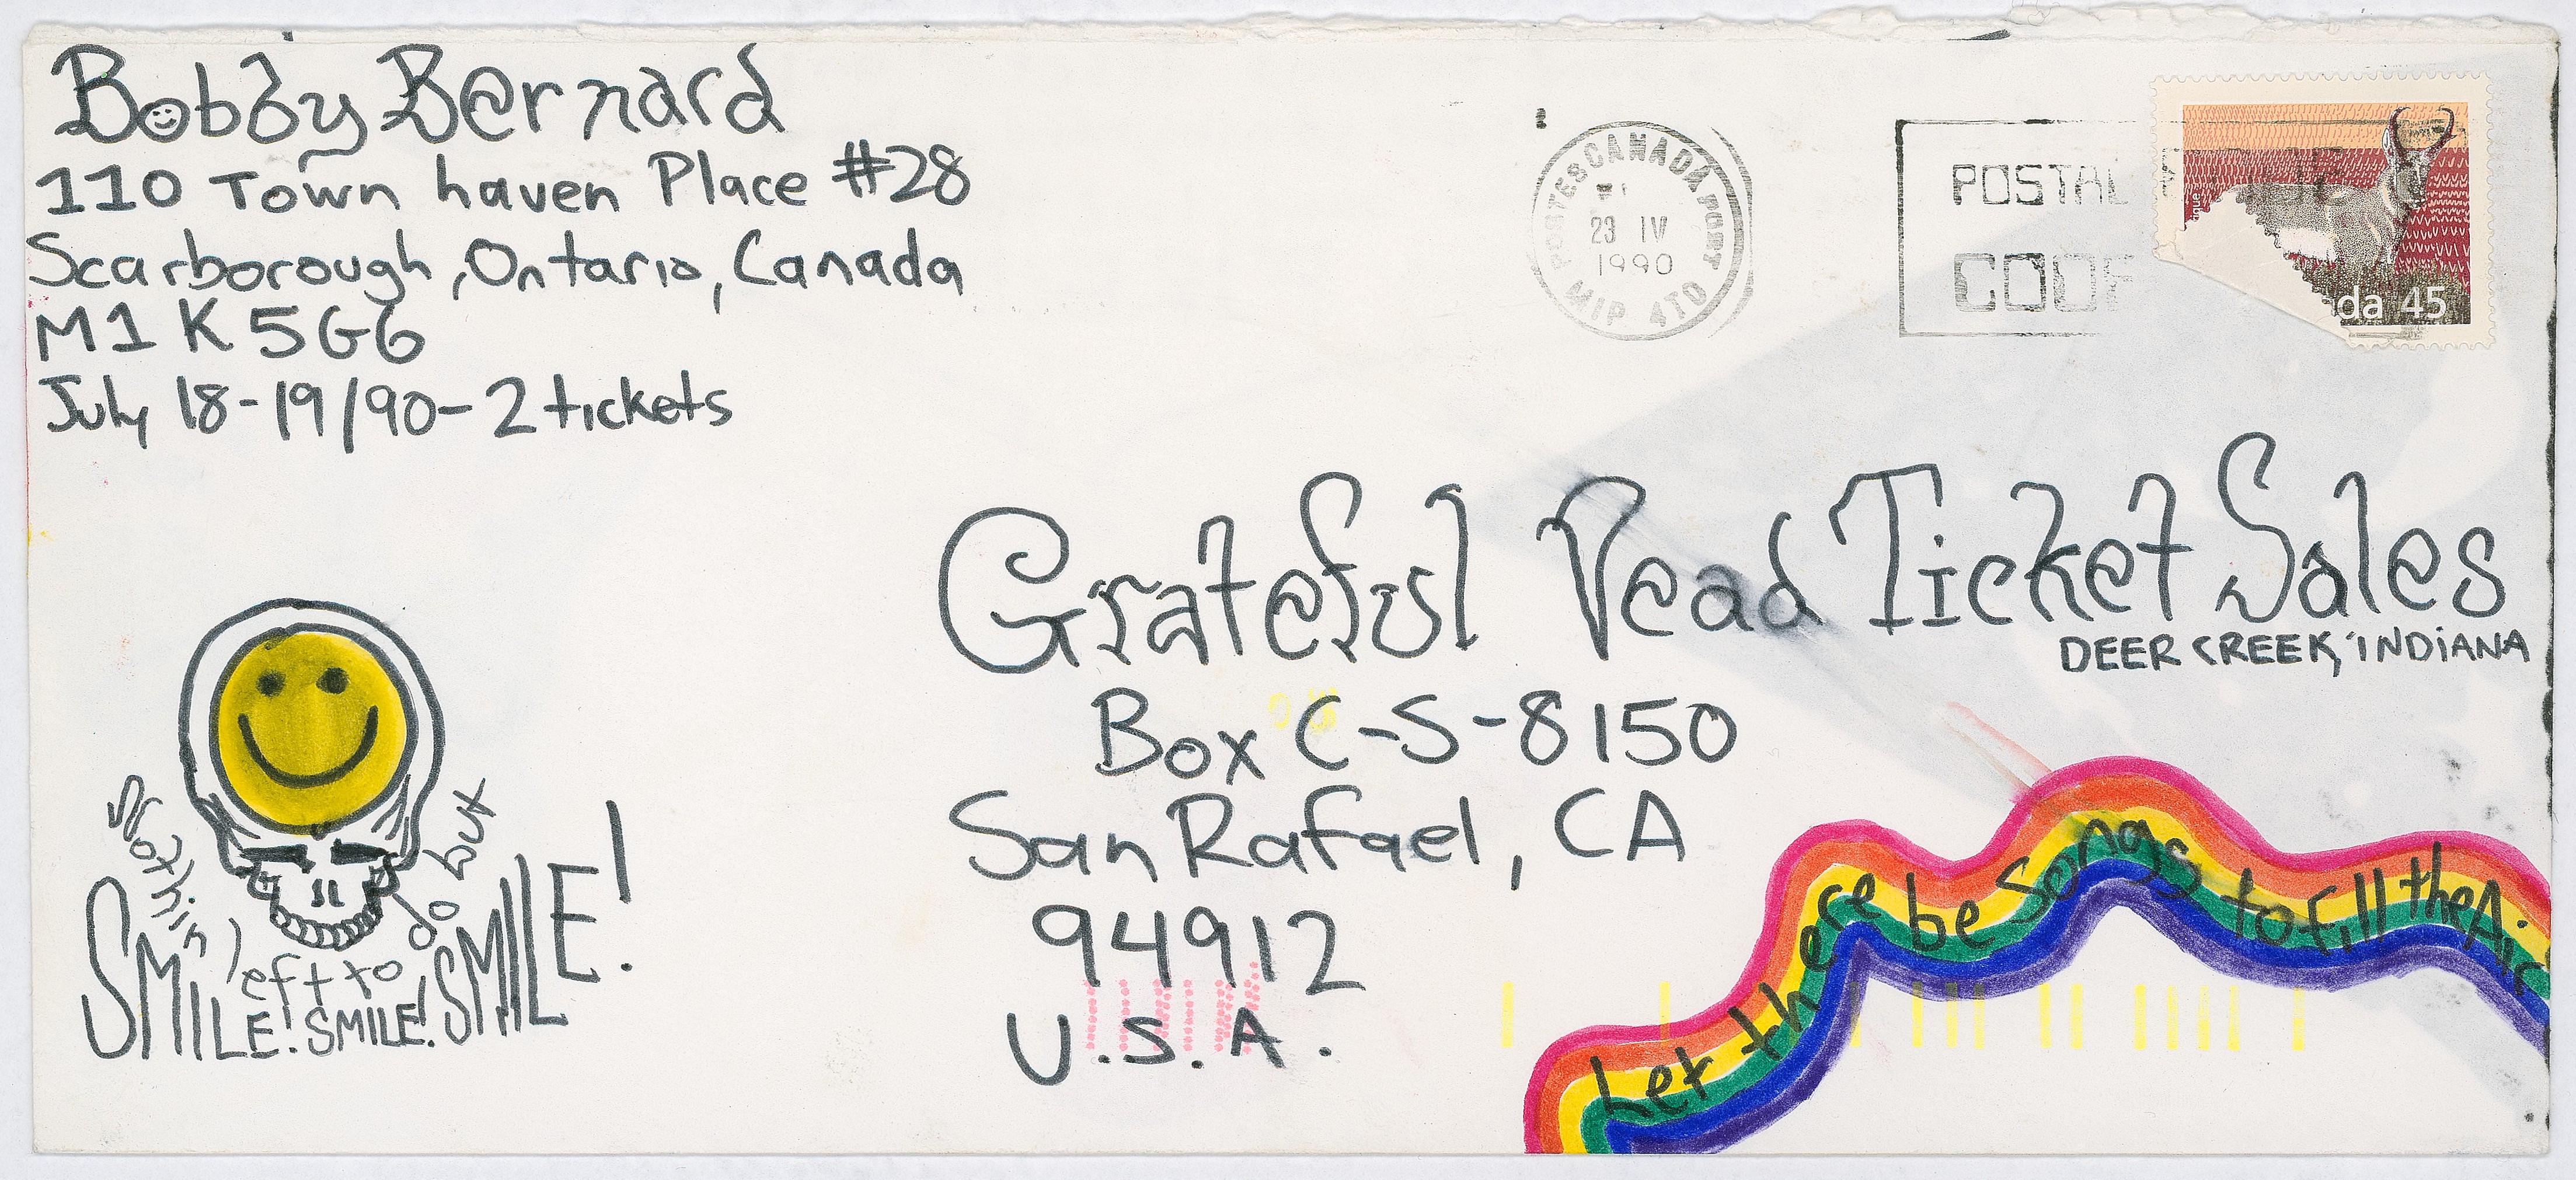 Bobby Bernard
110 Town haven Place #28
Scarborough, Ontario, Canada
M1K 5G6
July 18-19/90-2 tickets
POSTES CANADA POST
23 IV
1990
M1P 4T0
POSTAL
CODE
da 45
Grateful Dead Ticket Sales
DEER CREEK, INDIANA
Box C-S-8150
San Rafael, CA
94912
U.S.A.
Nothin' left to do but
SMILE! SMILE! SMILE!
Let there be Songs to Fill the Air